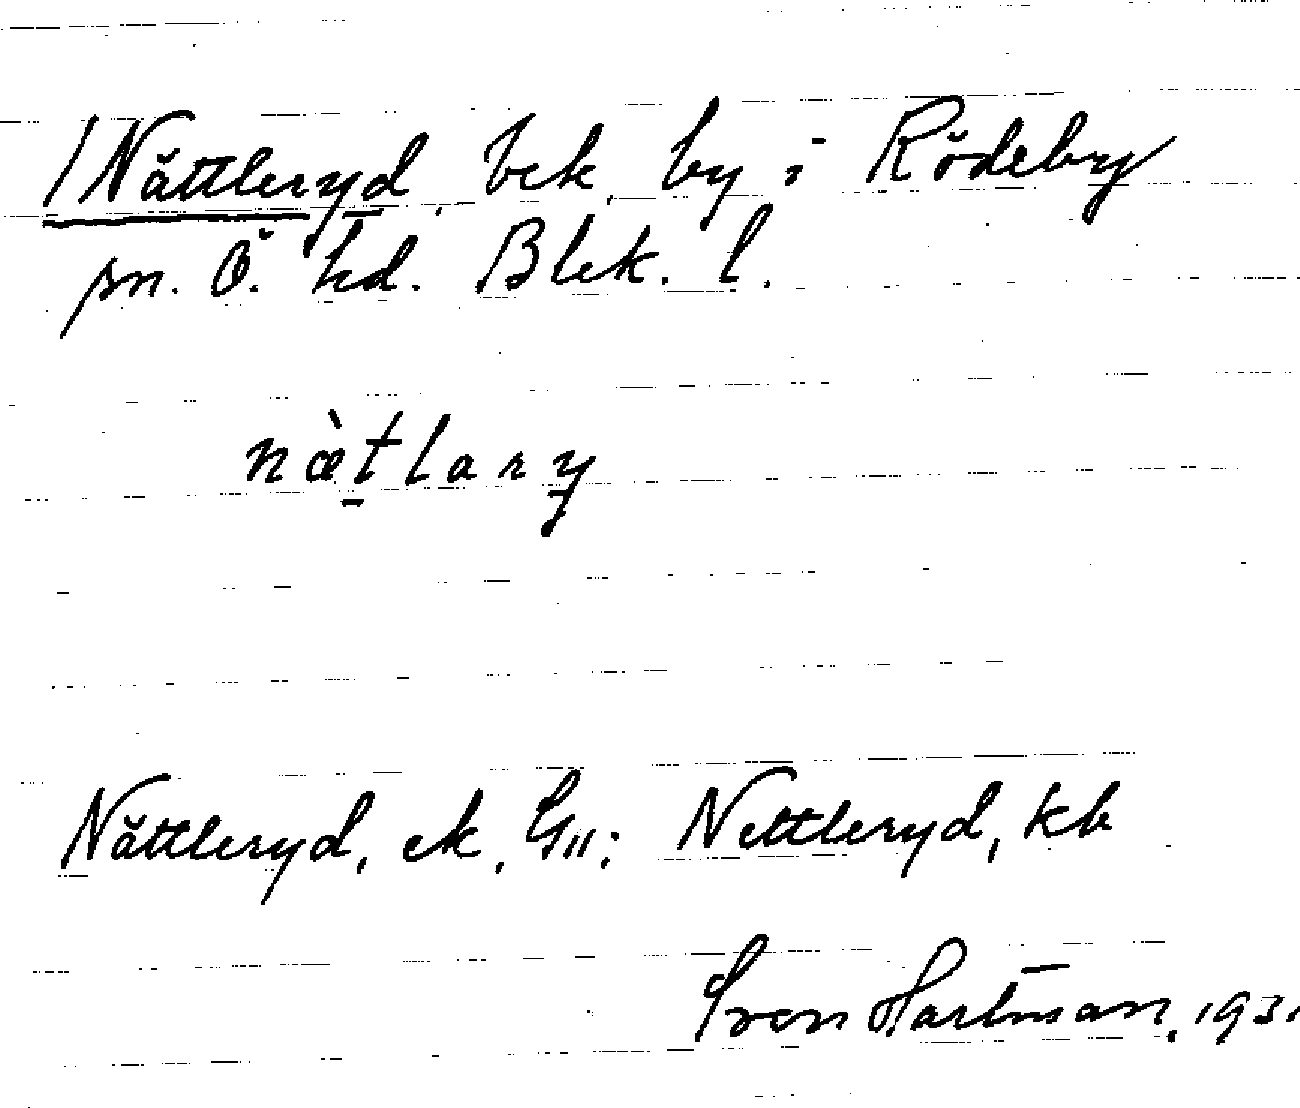 /Nättleryd, bek. by i Rödeby
sn. Ö. hd. Blek. l.
nœ̀tlary
Nättleryd, ek, G11: Nettleryd, kb
Sven Hartman, 1931